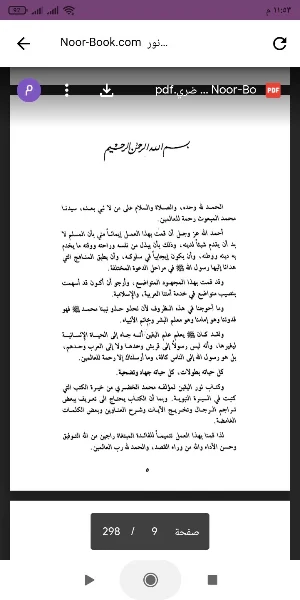 ١١:٥٣ م
Noor-Book.com نور...
Noor-Bo ... ضري.pdf
PDF
بسم الله الرحمن الرحيم
الحمد لله وحده، والصلاة والسلام على من لا نبي بعده، سيدنا
محمد المبعوث رحمة للعالمين.
أحمد الله عز وجل أن قمت بهذا العمل إيماناً مني بأن المسلم لا
بد أن يقدم شيئاً لدينه، وذلك بأن يبذل من نفسه وراحته ووقته ما يخدم
به دينه ووطنه، وأن يكون إيجابياً في سلوكه، وأن يطبق المناهج التي
هدانا إليها رسول الله ﷺ في مراحل الدعوة المختلفة.
وقد قمت بهذا المجهود المتواضع، وأرجو أن أكون قد أسهمت
بنصيب متواضع في خدمة أمتنا العربية، والإسلامية.
وما أحوجنا في هذه الظروف لأن نحذو حذو نبينا محمد ﷺ فهو
قدوتنا وهو إمامنا وهو معلم البشر وخاتم الأنبياء.
ولقد كان ﷺ يعلم علم اليقين أنه جاء إلى الحياة الإنسانية
ليغيرها، وأنه ليس رسولاً إلى قريش وحدها ولا إلى العرب وحدهم،
بل هو رسول الله إلى الناس كافة، وما أرسلناك إلا رحمة للعالمين.
كل حياته بطولات، كل حياته جهاد وتضحية.
وكتاب نور اليقين لمؤلفه محمد الخضري من خيرة الكتب التي
كتبت في السيرة النبوية. وبما أن الكتاب يحتاج الى تعريف ببعض
تراجم الرجال وتخريج الآيات وشرح العناوين وبعض الكلمات
الغامضة.
لذا قمنا بهذا العمل تتميماً للفائدة المبتغاة راجين من الله التوفيق
وحسن الأداء والله من وراء القصد، والحمد لله رب العالمين.
٥
صفحة 9 / 298